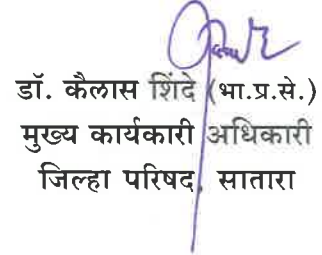 डॉ. कैलास शिंदे (भा.प्र.से.)
मुख्य कार्यकारी अधिकारी
जिल्हा परिषद, सातारा